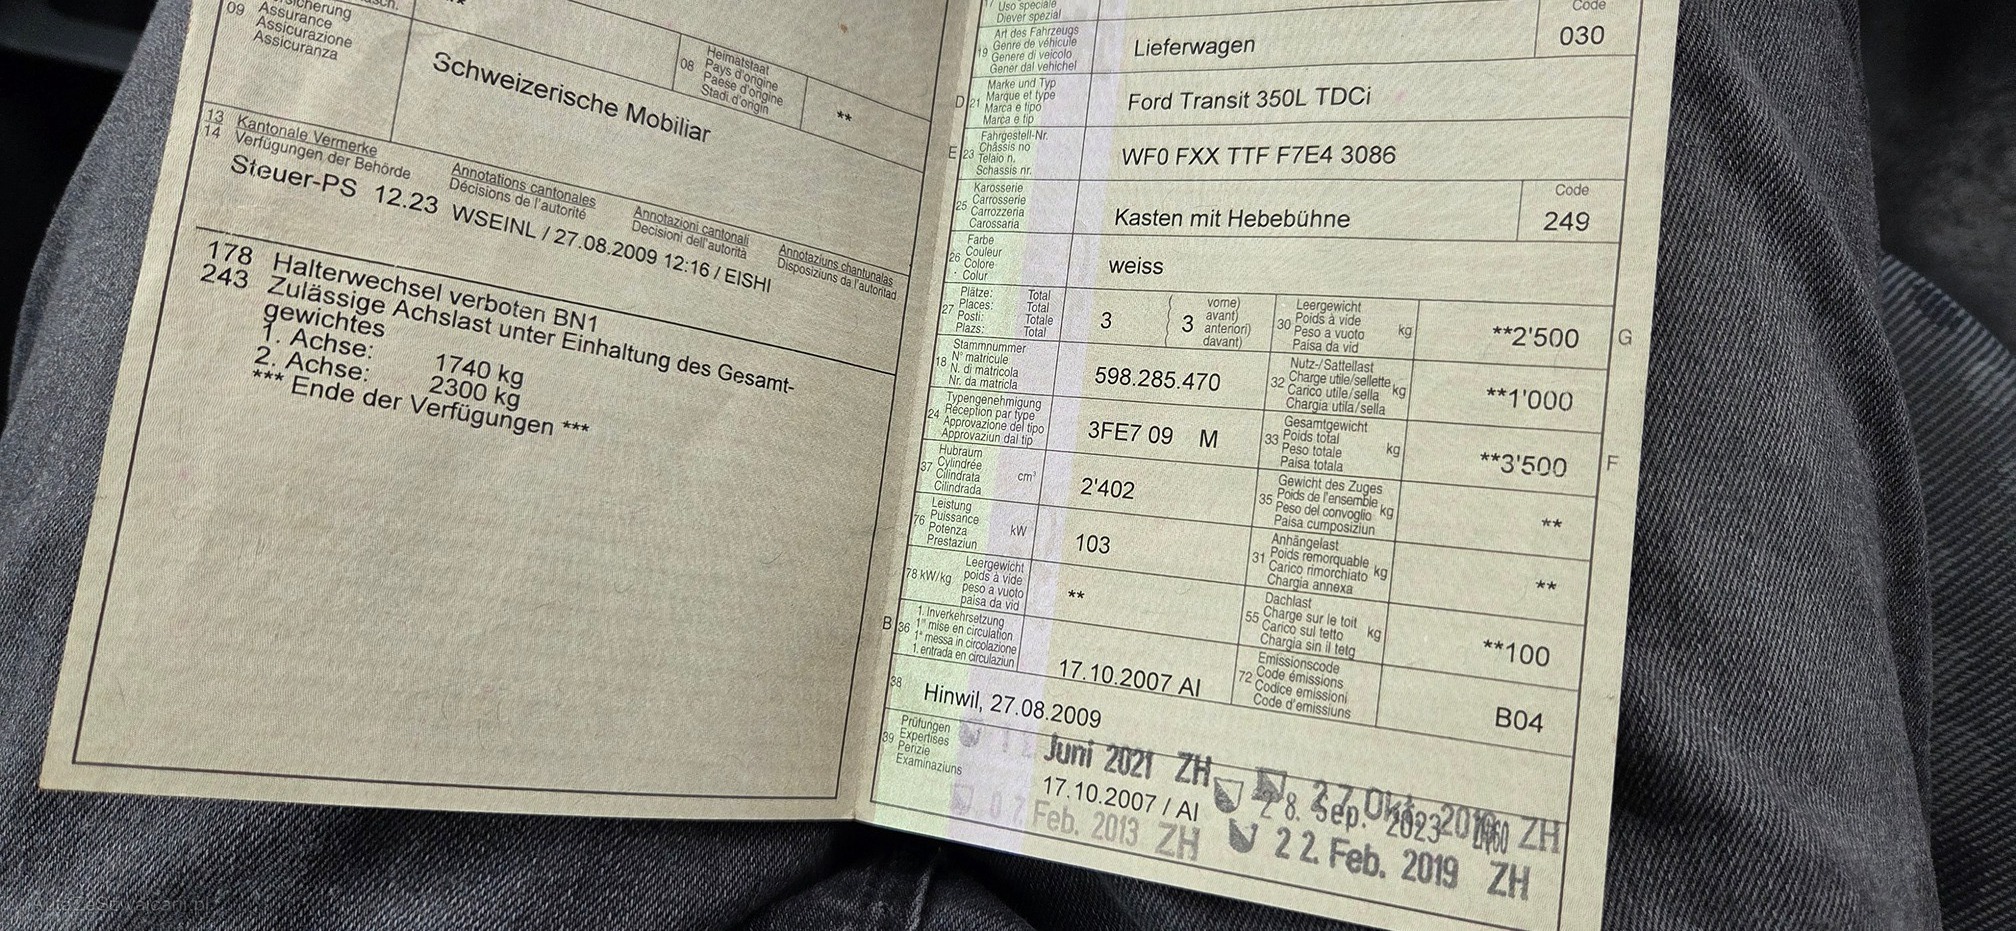 09
sicherung
Assurance
Assicurazione
Assicuranza
**
Schweizerische Mobiliar
08
Heimatstaat
Pays d'origine
Paese d'origine
Stadi d'origin
**
13
14
Kantonale Vermerke
Verfügungen der Behörde
Annotations cantonales
Décisions de l'autorité
Annotazioni cantonali
Decisioni dell'autorità
Annotaziuns chantunalas
Disposiziuns da l'autoritad
Steuer-PS 12.23 WSEINL / 27.08.2009 12:16 / EISHI
178 Halterwechsel verboten BN1
243 Zulässige Achslast unter Einhaltung des Gesamt-
gewichtes
1. Achse: 1740 kg
2. Achse: 2300 kg
*** Ende der Verfügungen ***
17
Uso speciale
Diever spezial
19
Art des Fahrzeugs
Genre de véhicule
Genere di veicolo
Gener dal vehichel
Lieferwagen
Code
030
D 21
Marke und Typ
Marque et type
Marca e tipo
Marca e tip
Ford Transit 350L TDCi
E 23
Fahrgestell-Nr.
Châssis no
Telaio n.
Schassis nr.
WF0 FXX TTF F7E4 3086
25
Karosserie
Carrosserie
Carrozzeria
Carossaria
Kasten mit Hebebühne
Code
249
26
Farbe
Couleur
Colore
Colur
weiss
27
Plätze: Total
Places: Total
Posti: Totale
Plazs: Total
3
3
vorne)
avant)
anteriori)
davant)
30
Leergewicht
Poids à vide
Peso a vuoto
Paisa da vid
kg
**2'500
G
18
Stammnummer
N° matricule
N. di matricola
Nr. da matricla
598.285.470
32
Nutz-/Sattellast
Charge utile/sellette
Carico utile/sella
Chargia utila/sella
kg
**1'000
24
Typengenehmigung
Réception par type
Approvazione del tipo
Approvaziun dal tip
3FE7 09 M
33
Gesamtgewicht
Poids total
Peso totale
Paisa totala
kg
**3'500
F
37
Hubraum
Cylindrée
Cilindrata
Cilindrada
cm³
2'402
35
Gewicht des Zuges
Poids de l'ensemble
Peso del convoglio
Paisa cumposiziun
kg
**
76
Leistung
Puissance
Potenza
Prestaziun
kW
103
31
Anhängelast
Poids remorquable
Carico rimorchiato
Chargia annexa
kg
**
78 kW/kg
Leergewicht
poids à vide
peso a vuoto
paisa da vid
**
55
Dachlast
Charge sur le toit
Carico sul tetto
Chargia sin il tetg
kg
**100
B 36
1. Inverkehrsetzung
1re mise en circulation
1a messa in circolazione
1. entrada en circulaziun
17.10.2007 AI
72
Emissionscode
Code émissions
Codice emissioni
Code d'emissiuns
B04
38
Hinwil, 27.08.2009
39
Prüfungen
Expertises
Perizie
Examinaziuns
Juni 2021 ZH
27. Okt. ZH
17.10.2007 / AI
28. Sep. 2023
07. Feb. 2013 ZH
22. Feb. 2019 ZH